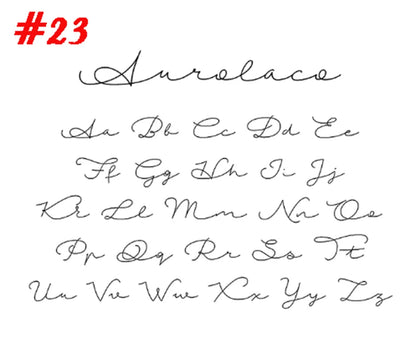 #23
Aurolaco
Aa Bb Cc Dd Ee
Ff Gg Hh Ii Jj
Kk Ll Mm Nn Oo
Pp Qq Rr Ss Tt
Uu Vv Ww Xx Yy Zz